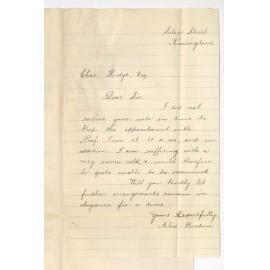 Street
Kensington
Chas. Hodge Esq
Dear Sir
I did not
receive your note in time to
keep the appointment with
Prof. at 10 a.m., and in
addition I am suffering with a
very severe cold, & would therefore
be quite unable to be examined
Will you kindly let
further arrangements remain in
abeyance for a time
Yours Respectfully